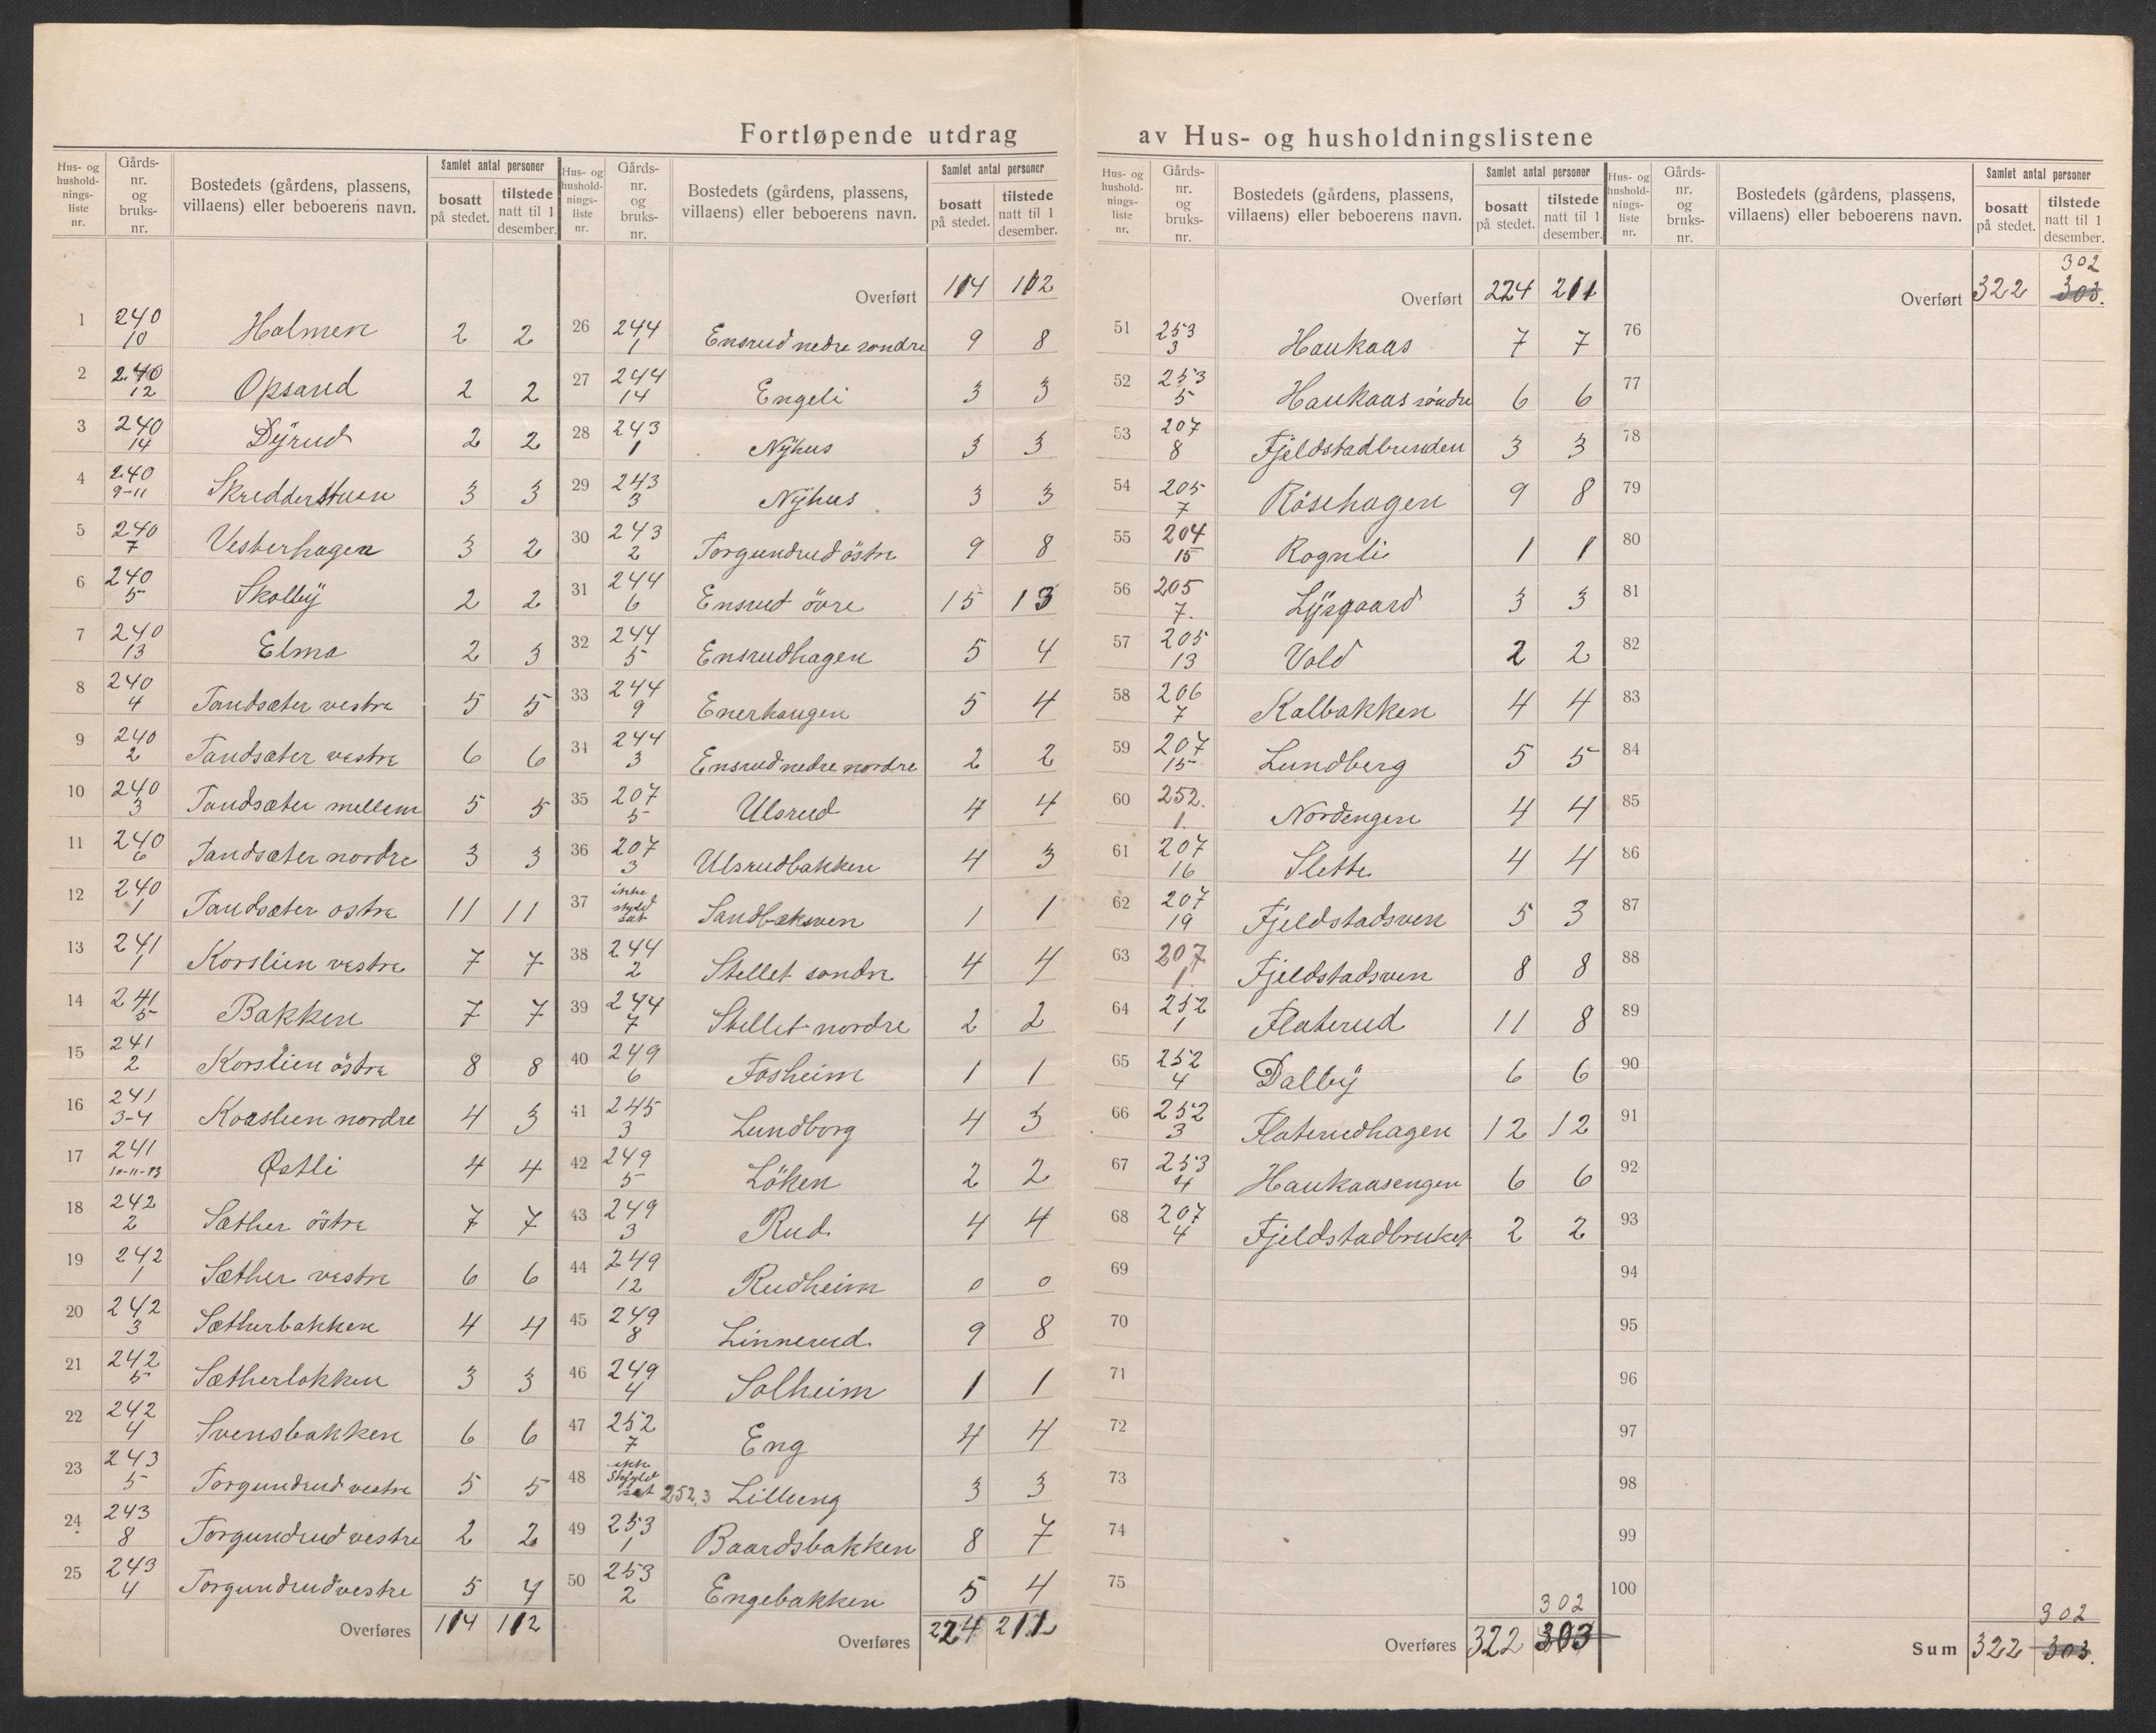 Fortløpende utdrag av Hus- og husholdningslistene
Hus- og hushold-nings-liste nr. | Gårds-nr. og bruks-nr. | Bostedets (gårdens, plassens, villaens) eller beboerens navn. | Samlet antal personer | bosatt på stedet. | tilstede natt til 1 desember.
1 240 10 Holmen 2 2
2 240 12 Opsand 2 2
3 240 14 Dÿrud 2 2
4 240 9-11 Skredderstuen 3 3
5 240 7 Vesterhagen 3 2
6 240 5 Skolbÿ 2 2
7 240 13 Elma 2 3
8 240 4 Tandsæter vestre 5 5
9 240 2 Tandsæter vestre 6 6
10 240 3 Tandsæter mellem 5 5
11 240 6 Tandsæter nordre 3 3
12 240 1 Tandsæter østre 11 11
13 241 1 Korslien vestre 7 7
14 241 5 Bakken 7 7
15 241 2 Korslien östre 8 8
16 241 3-4 Korslien nordre 4 3
17 241 10-11-13 Østli 4 4
18 242 2 Sæther östre 7 7
19 242 1 Sæther vestre 6 6
20 242 3 Sætherbakken 4 4
21 242 5 Sætherlokken 3 3
22 242 4 Svensbakken 6 6
23 243 5 Torgundrud vestre 5 5
24 243 8 Torgundrud vestre 2 2
25 243 4 Torgundrud vestre 5 4
Overføres 114 112
Hus- og hushold-nings-liste nr. | Gårds-nr. og bruks-nr. | Bostedets (gårdens, plassens, villaens) eller beboerens navn. | Samlet antal personer | bosatt på stedet. | tilstede natt til 1 desember.
Overført 114 112
26 244 1 Ensrud nedre søndre 9 8
27 244 14 Engeli 3 3
28 243 1 Nÿhus 3 3
29 243 3 Nÿhus 3 3
30 243 2 Torgundrud östre 9 8
31 244 6 Ensrud övre 15 13
32 244 5 Ensrudhagen 5 4
33 244 9 Enerhaugen 5 4
34 244 3 Ensrud nedre nordre 2 2
35 207 5 Ulsrud 4 4
36 207 3 Ulsrudbakken 4 3
37 ikke skyld sat Sandbækven 1 1
38 244 2 Stellet søndre 4 4
39 244 7 Stellet nordre 2 2
40 249 6 Fosheim 1 1
41 245 3 Lundborg 4 3
42 249 5 Löken 2 2
43 249 3 Rud 4 4
44 249 12 Rudheim 0 0
45 249 8 Linnerud 9 8
46 249 4 Solheim 1 1
47 252 7 Eng 4 4
48 ikke skyld sat 252,3 Lilleeng 3 3
49 253 1 Baardsbakken 8 7
50 253 2 Engebakken 5 4
Overføres 224 211
Hus- og hushold-nings-liste nr. | Gårds-nr. og bruks-nr. | Bostedets (gårdens, plassens, villaens) eller beboerens navn. | Samlet antal personer | bosatt på stedet. | tilstede natt til 1 desember.
Overført 224 211
51 253 3 Haukaas 7 7
52 253 5 Haukaas söndre 6 6
53 207 8 Fjeldstadbunden 3 3
54 205 7 Rösehagen 9 8
55 204 15 Rognli 1 1
56 205 7. Lÿsgaard 3 3
57 205 13 Vold 2 2
58 206 7 Kalbakken 4 4
59 207 15 Lundberg 5 5
60 252. 1. Nordengen 4 4
61 207 16 Slette 4 4
62 207 19 Fjeldstadsven 5 3
63 207 1 Fjeldstadsven 8 8
64 252 1 Flaterud 11 8
65 252 4 Dalbÿ 6 6
66 252 3 Flaterudhagen 12 12
67 253 4 Haukaasengen 6 6
68 207 4 Fjeldstadbruket 2 2
69
70
71
72
73
74
75
302
Overføres 322 303
Hus- og hushold-nings-liste nr. | Gårds-nr. og bruks-nr. | Bostedets (gårdens, plassens, villaens) eller beboerens navn. | Samlet antal personer | bosatt på stedet. | tilstede natt til 1 desember.
302
Overført 322 303.
76
77
78
79
80
81
82
83
84
85
86
87
88
89
90
91
92
93
94
95
96
97
98
99
100
302
Sum 322 303.